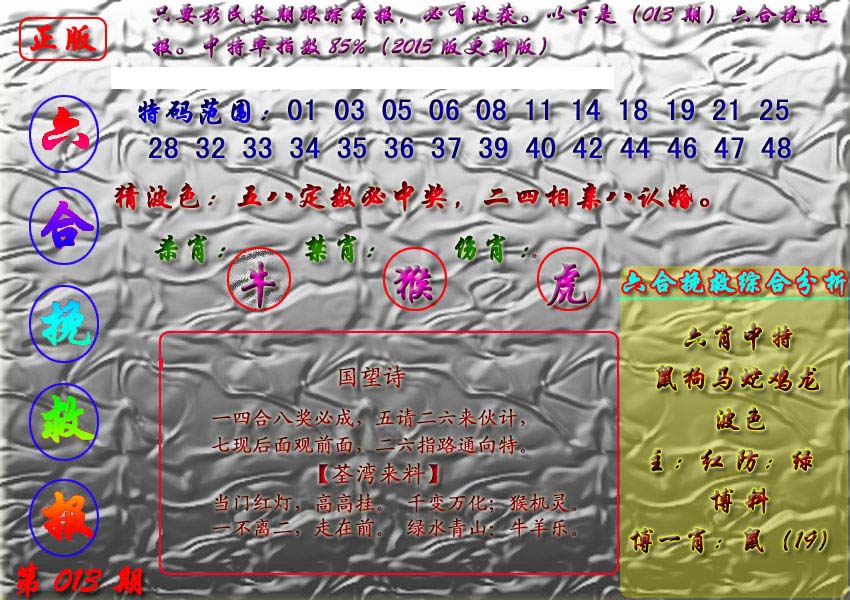 正版
只要彩民长期跟踪本报，必有收获。以下是（013 期）六合挽救
报。中特率指数 85%（2015 版更新版）
六合挽救报
第 013 期
特码范围：01 03 05 06 08 11 14 18 19 21 25
28 32 33 34 35 36 37 39 40 42 44 46 47 48
猜波色：五八定数必中奖，二四相亲八认婚。
杀肖：牛 禁肖：猴 伤肖：虎
国望诗
一四合八奖必成，五请二六来伙计，
七现后面观前面，二六指路通向特。
【荃湾来料】
当门红灯，高高挂。 千变万化；猴机灵。
一不离二，走在前。 绿水青山；牛羊乐。
六合挽救综合分析
六肖中特
鼠狗马蛇鸡龙
波色
主：红 防：绿
博料
博一肖：鼠（19）